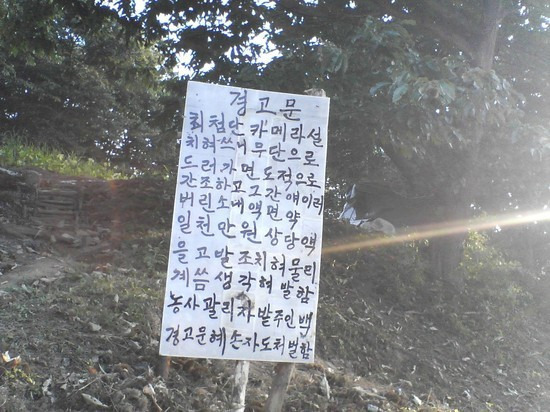 경고문
최첨단 카메라설
치혀쓰니 무단으로
드러가면 도적으로
간조하고 그간 얘이러
버린 소내액 면약
일천만원 상당액
을 고발조치혀 물리
게씀 생각혀 발함
농사 팔리자 발주인 백
경고문 훼손자도 처벌함